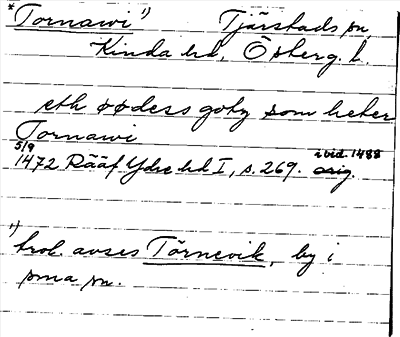 *Tornawi 1) Tjärstads sn,
Kinda hd, Östberg. l.
eth øødess gotz som heter
Tornawi
5/9 i vid. 1488
1472 Rääf Ydre hd I, s. 269. orig.
1) trol. avses Törnevik, by i
sma sn.